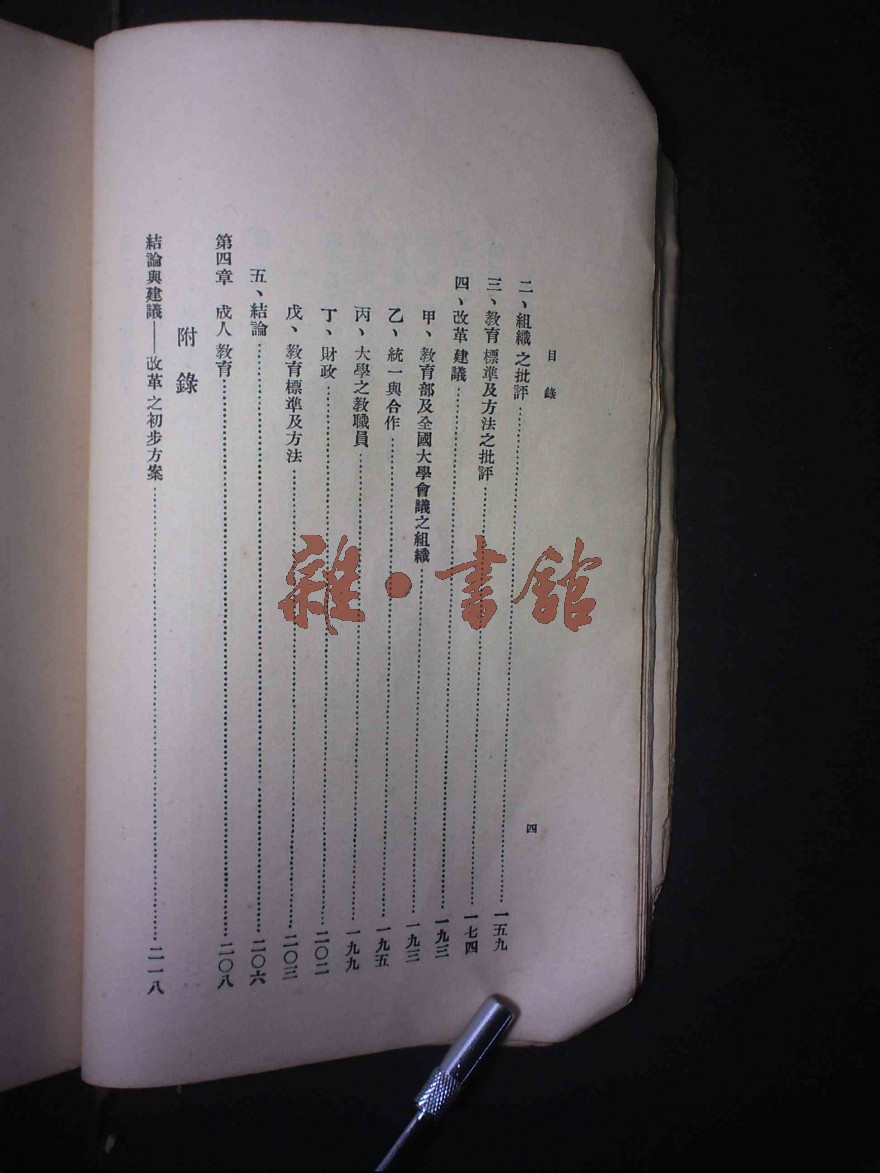 目錄
四
二、組織之批評……一五九
三、教育標準及方法之批評……一七四
四、改革建議……一九三
甲、教育部及全國大學會議之組織……一九三
乙、統一與合作……一九五
丙、大學之教職員……一九九
丁、財政……二〇二
戊、教育標準及方法……二〇三
五、結論……二〇六
第四章 成人教育……二〇八
附錄
結論與建議——改革之初步方案……二一八
雜·書館